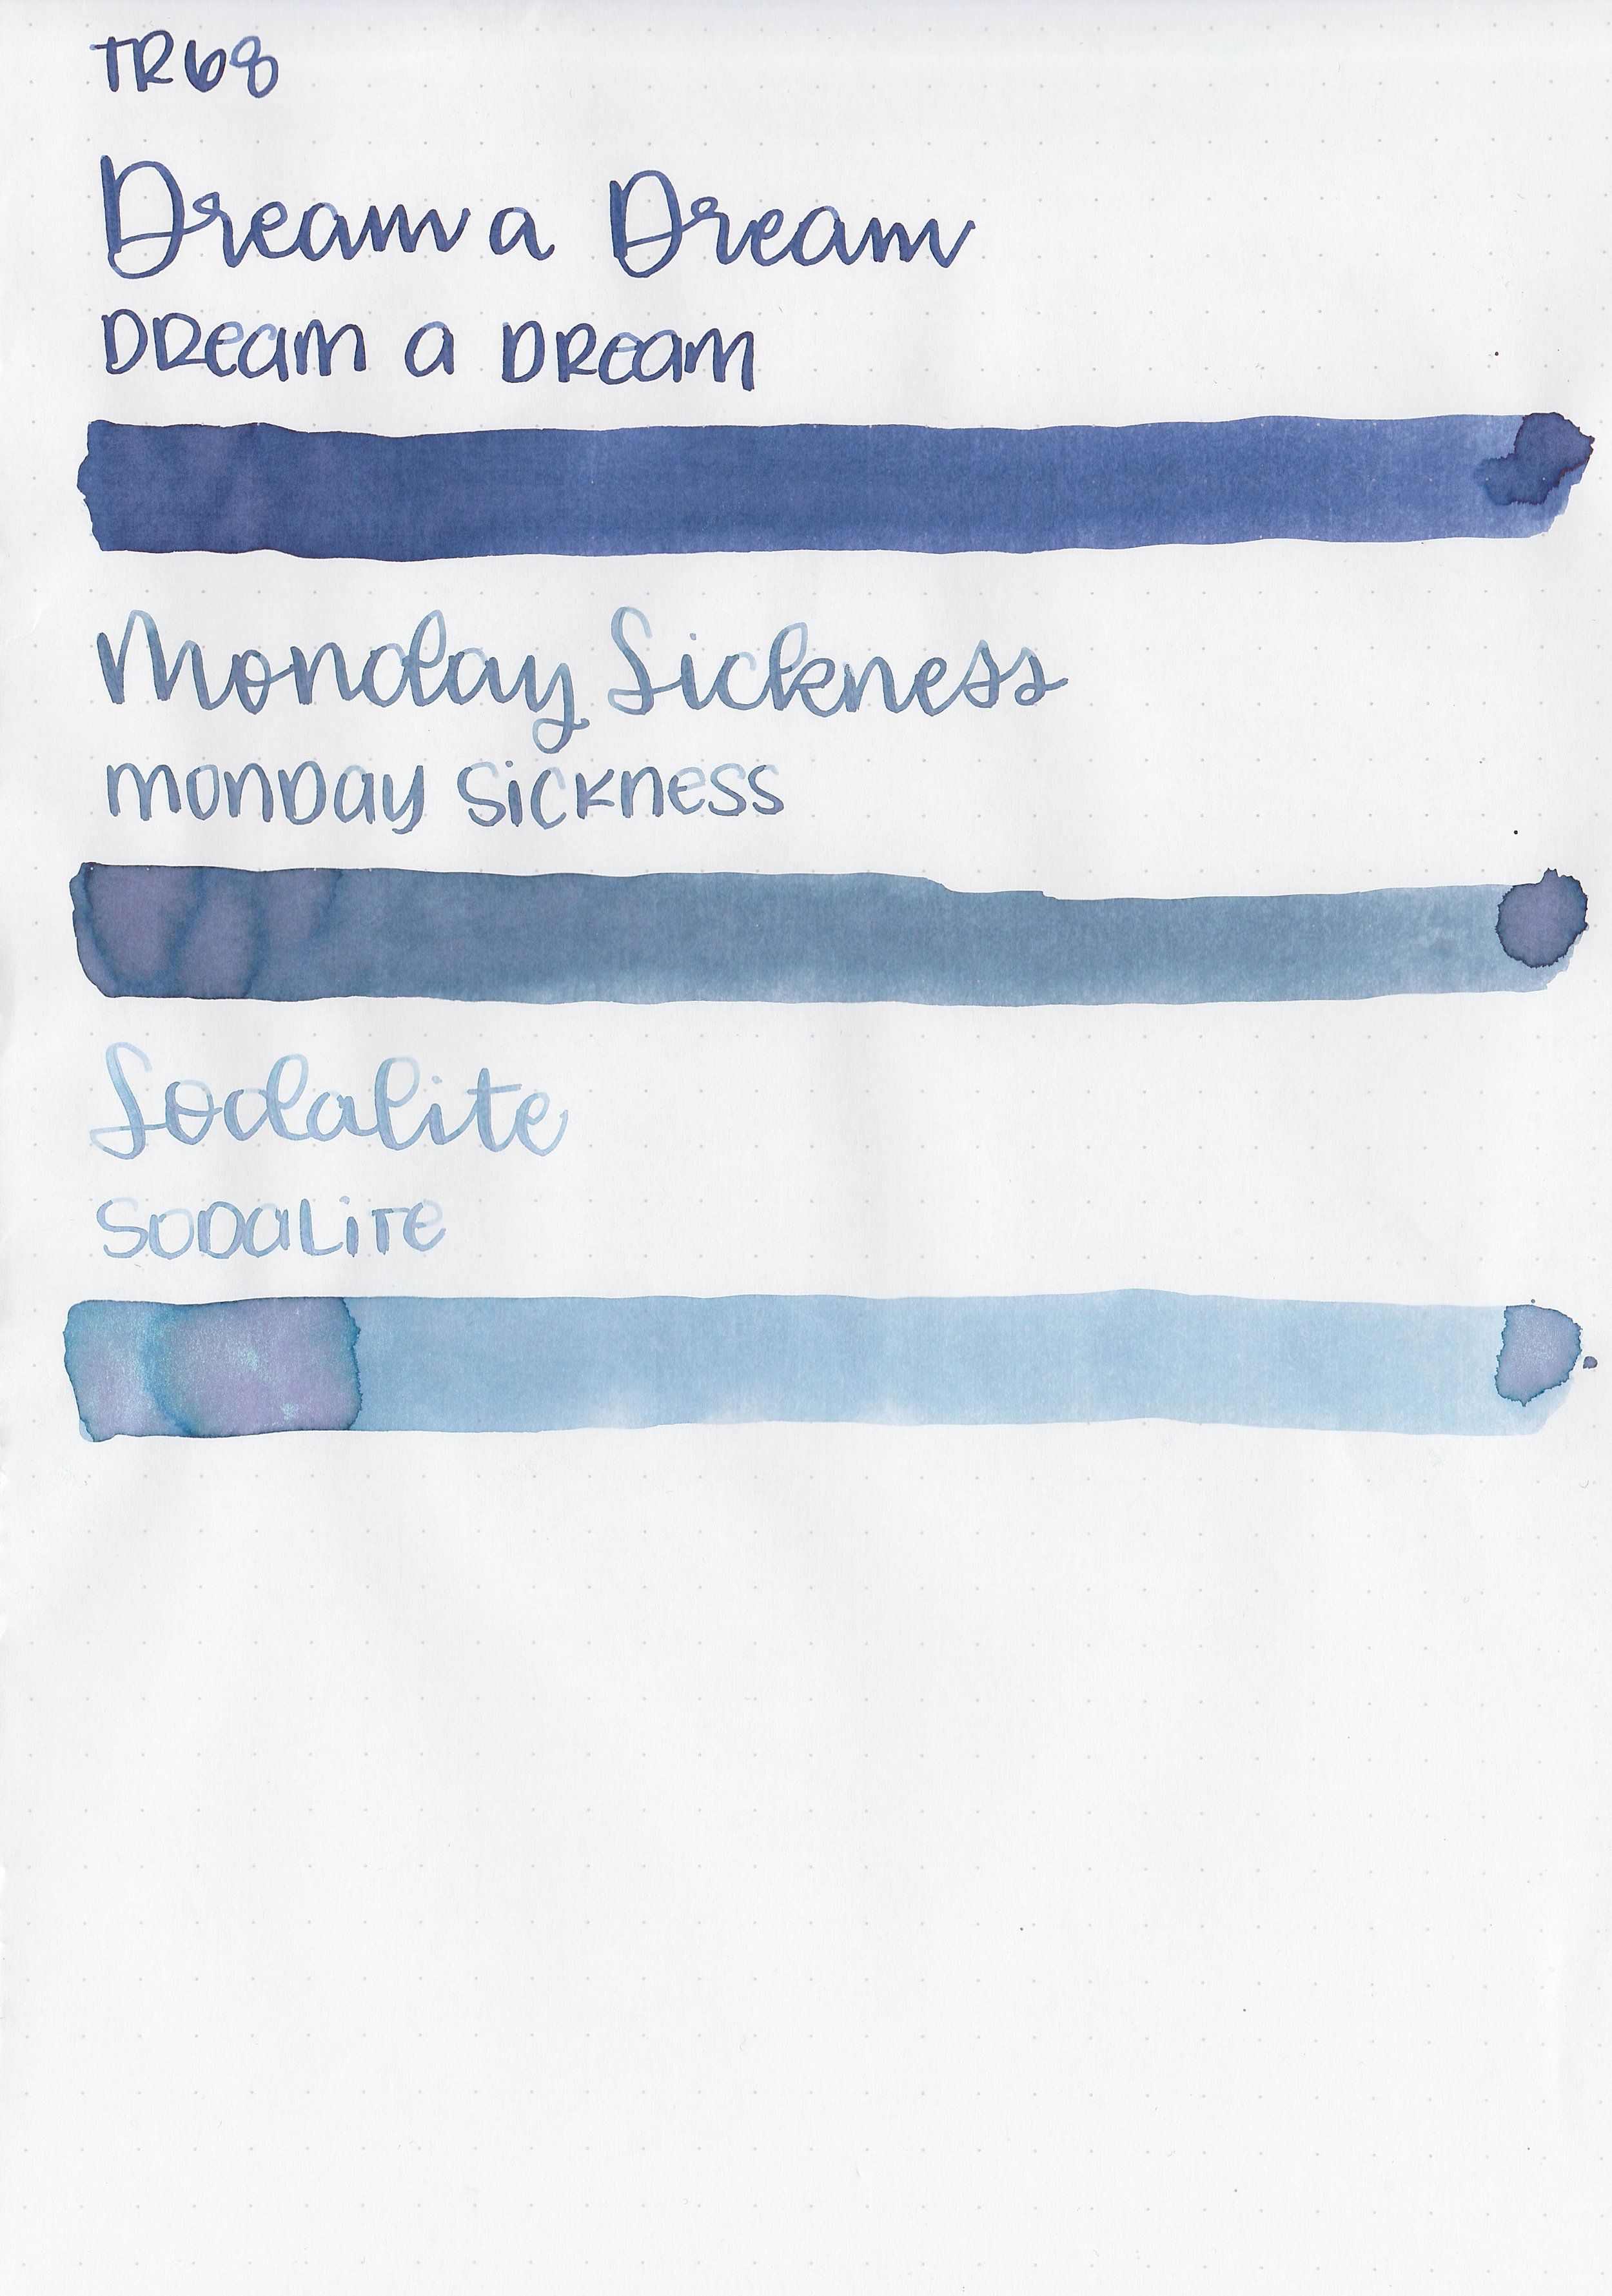 TR68
Dream a Dream
DReam a DReam
Monday Sickness
monDay SicKness
Sodalite
SODaLiTe